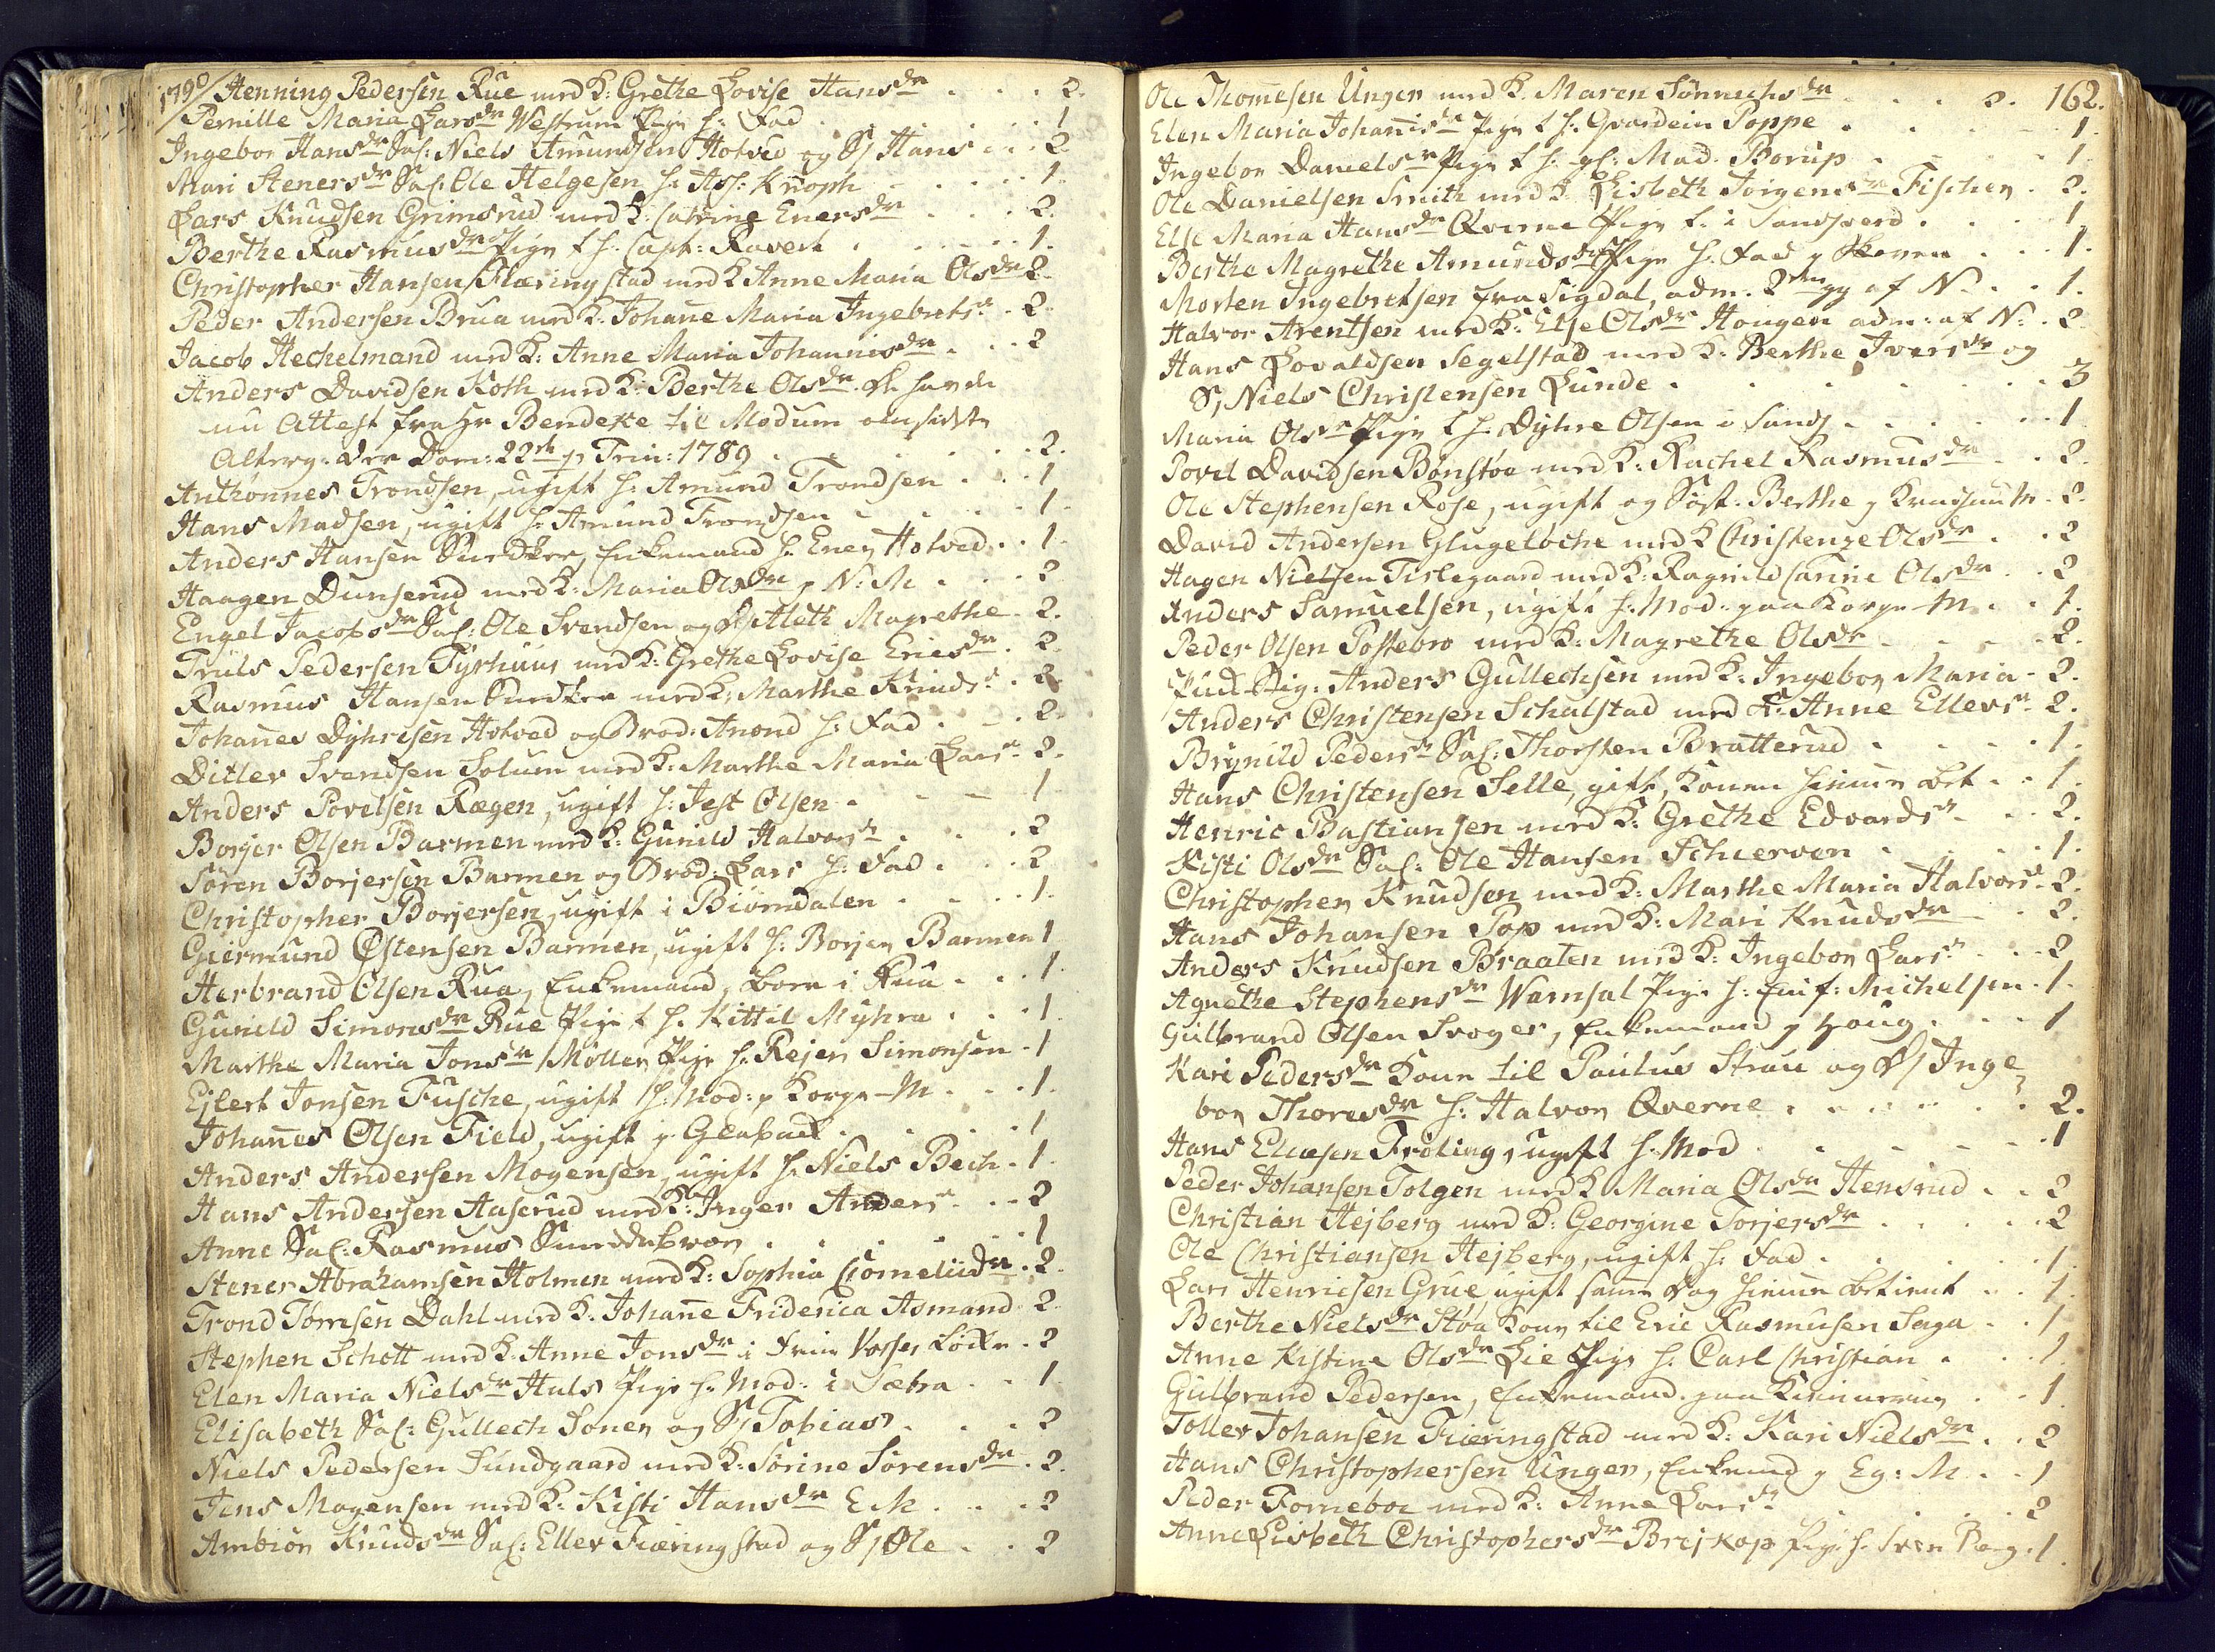 1790/ Henning Pedersen Rue med K: Grethe Lovise Hansdr . . . 2.
Pernille Maria Larsdr Westrum Pige h: Fad . . . 1
Ingebor Hansdr Sal: Niels Amundsen Hotved og S/ Hans . . . 2
Mari Stenersdr Sal: Ole Helgesen h: Ass: Knoph . . . 1.
Lars Knudsen Grimsrud med K: Catrine Enersdr . . . 2.
Berthe Rasmusdr Pige t h: Capt: Ravert . . . 1.
Christopher Hansen Flæringstad med K Anne Maria Olsdr 2.
Peder Andersen Brua med K: Johane Maria Ingebretsr . 2.
Jacob Hechelmand med K: Anne Maria Johannisdr . . . 2
Anders Davidsen Koth med K: Berthe Olsdr. de havde
nu Attest fra Hr Bendeke til Modum om sidste
Alterg: der Dom: 22de p Trin: 1789 . . . 2.
Anthonnes Trondsen, ugift h: Amund Trondsen . . 1
Hans Madsen, ugift h: Amund Trondsen . . . 1.
Anders Hansen Snedker, Enkemand h: Ener Hotved . . 1
Haagen Dunserud med K: Maria Olsdr p N: M . . . 2
Engel Jacobsdr Sal: Ole Svendsen og D/ Aleth Magrethe . 2.
Truls Pedersen Fyrhuus med K: Grethe Lovise Ericsdr . 2.
Rasmus Hansen Snedker med K: Marthe Knudsr . 2
Johanes Dyhrisen Hotved og Brod: Anond h: Fad . . . 2.
Ditlev Svendsen Solum med K: Marthe Maria Larsr . 2.
Anders Povelsen Rægen, ugift h: Jest Olsen . . . 1
Borger Olsen Barmen med K: Gunild Halvorsr . . . 2
Søren Borjersen Barmen og Brod: Lars h: Fad . . . 2
Christopher Borjersen, ugift i Biørndalen . . . 1.
Giermund Østensen Barmen, ugift h: Borjer Barmen 1
Herbrand Olsen Rua, Enkemand, boer i Rua . . . 1
Gunild Simonsdr Rue Pige t h: Kittil Myhra . . . 1
Marthe Maria Jonsr Møller Pige h: Rejer Simonsen . 1
Ejlert Jonsen Fusche, ugift h: Mod: p Korge-M . . . 1.
Johanes Olsen Field, ugift p Glabak . . . 1
Anders Andersen Mogensen, ugift h: Niels Bech . 1
Hans Andersen Haserud med K: Inger Andersr . . 2
Anne Sal: Rasmus . . . 1
Stener Abrahamsen Holmen med K: Sophia Corneliidr . 2.
Trond Tømsen Dahl med K: Johane Friderica Asmand 2
Stephen Schott med K: Anne Jonsdr i Løkke . 2
Elen Maria Nielsdr Huls Pige h: Mod: i Sætra . . 1
Elisabeth Sal: Gullech Joner og S/ Tobias . . . 2
Niels Pedersen Sundgaard med K: Sørine Sørensdr . 2.
Jens Mogensen med K: Kisti Hansdr Eck . . . 2
Ambiør Knudsdr Sal: Eller Fiæringstad og S/ Ole . . 2
Ole Thomesen Unger med K. Maren Sønnichsdr . . . 2. 162.
Elen Maria Johanisdr Pige t h: Gvardein Poppe . . . 1.
Ingebor Danielsr Pige t h: gl: Mad. Borup . . . 1.
Ole Danielsen Smith med K Lisbeth Jørgensr Fischer . 2.
Else Maria Hansdr Qverne Pige t. i Sandsverd . . . 1
Berthe Magrethe Amundsdr Pige h: Fad p . . . 1.
Morten Ingebretsen fra Sigdal, adm. 2den gg af N: . . 1.
Halvor Arentsen med K: Else Olsdr Hougen adm: af N: . 2
Hans Lovaldsen Segelstad med K: Berthe Iversdr og
S, Niels Christensen Lunde . . . 3
Maria Olsdr Pige t h: Dyhre Olsen i Sands . . . 1
Povel Davidsen Bønstøe med K: Rachel Rasmusdr . . 2.
Ole Stephensen Rose, ugift og Søst: Berthe p Knudsen M . 2.
David Andersen Glugeløche med K Christenze Olsdr . . 2
Hagen Nielsen Tislegaard med K: Ragnild Carine Olsdr . . 2
Anders Samuelsen, ugift h: Mod: paa Korge-M . . 1.
Peder Olsen Postebro med K: Magrethe Olsdr . . . 2.
Anders Gullechsen med K: Ingebor Maria . 2.
Anders Christensen Schalstad med K: Anne Ellevsr . 2.
Brynild Pedersr Sal: Thorsten Bratterud . . . 1.
Hans Christensen Selle, gift, Konen hiemme bet . . 1.
Henric Bastiansen med K: Grethe Edvardsr . . . 2.
Kisti Olsdr Sal: Ole Hansen Schierven . . . 1.
Christopher Knudsen med K: Marthe Maria Halvorsr . 2.
Hans Johansen Pop med K: Mari Knudsdr . . 2.
Anders Knudsen Braaten med K: Ingebor Larsr . . . 2
Agnethe Stephensdr Warnsal Pige h: Enif: Michelsen . 1.
Gulbrand Olsen Svoger, Enkemand p Houg . . . 1
Kari Pedersdr Kone til Paulus Strau og D/ Inge
bor Thoresdr h: Halvor Qverne . . . 2.
Hans Eliæsen Frøling, ugift h: Mod . . . 1
Peder Johansen Tolgen med K Maria Olsdr Hensrud . . 2
Christian Hejberg med K: Georgine Torjersdr . . . 2
Ole Christiansen Hejberg, ugift h: Fad . . . 1.
Lars Henricsen Grue, ugift samme Dag hiemme betient . . 1.
Berthe Nielsdr Støa Kone til Eric Rasmusen Saga . . 1
Anne Kistine Olsdr Lie Pige h: Carl Christian . . . 1.
Gulbrand Pedersen, Enkemand paa . . 1.
Tollev Johansen Fiæringstad med K: Kari Nielsdr . . 2
Hans Christophersen Unger, Enkemd p Eg: M . . 1
Peder Fornebo med K: Anne Larsr . . . 2
Anne Lisbeth Christophersdr Brejkop Pige h: Iver . 1.